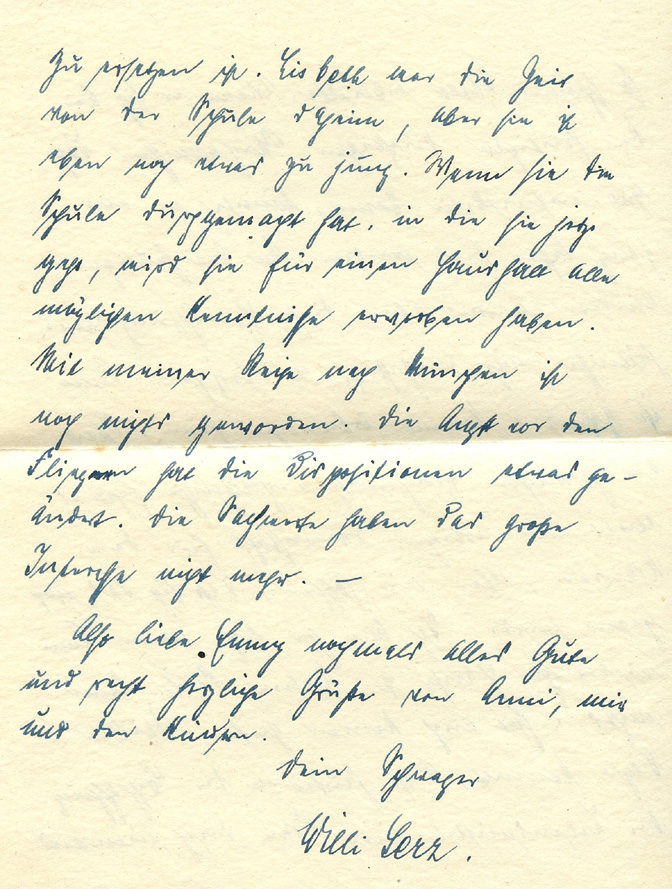 zu ersetzen ist. Lisbeth war die Zeit
von der Schule daheim, aber sie ist
eben noch etwas zu jung. Wenn sie die
Schule durchgemacht hat, in die sie jetzt
geht, wird sie für einen Haushalt alle
möglichen Kenntnisse erworben haben.
Mit meiner Reise nach München ist
noch nichts geworden. Die Angst vor den
Fliegern hat die Dispositionen etwas ge-
ändet. Die Sachwerte haben das große
Interesse nicht mehr. —
Also liebe Emmy nochmals alles Gute
und recht herzliche Grüße von Anni, mir
und den Kindern.
Dein Schwager
Willi Serz.